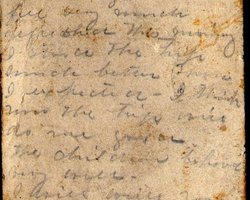 very much
the
since the trip
much better than
I expected - I think
now the trip will
do me good
the children behave
very well
I will write